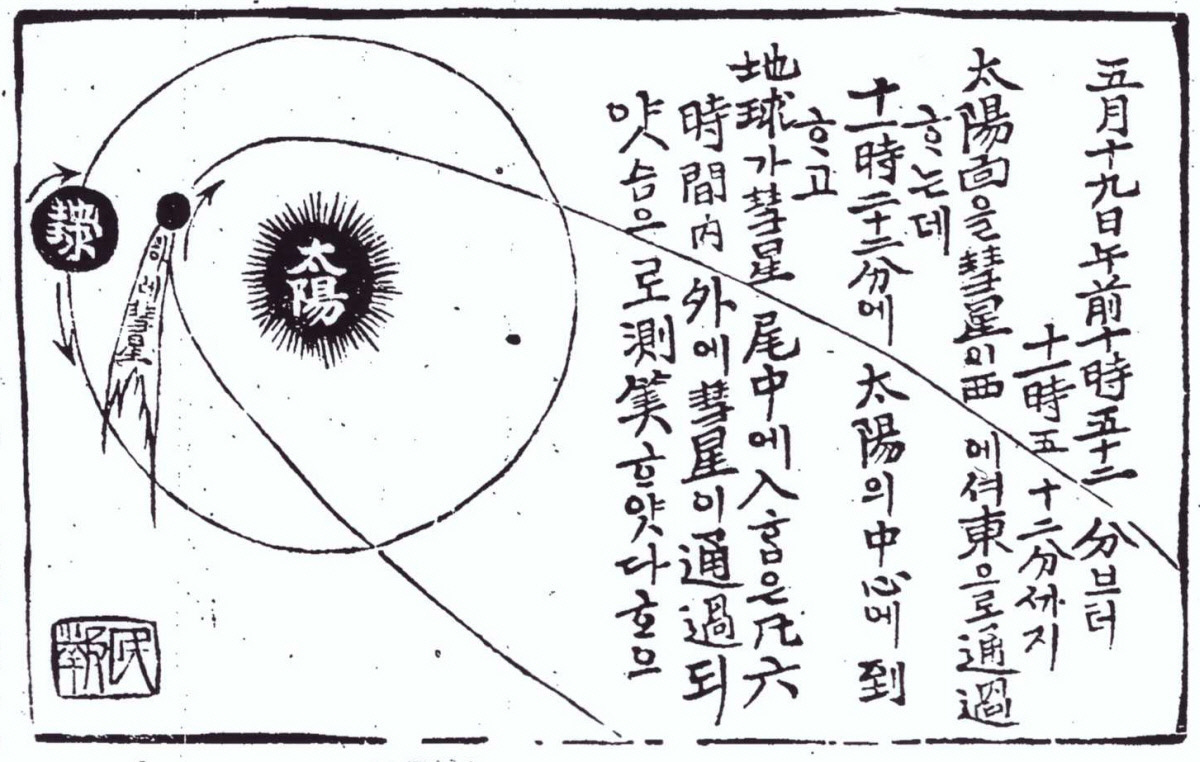 五月十九日午前十時五十二 分브터
十一時五 十二分ᄭᆞ지
太陽面을彗星이西 에셔東으로通過
ᄒᆞ는데
十一時二十二分에 太陽의中心에到
ᄒᆞ고
地球가彗星 尾中에入홈은凡六
時間內 外에彗星이通過되
얏슴으로測筭ᄒᆞ얏다ᄒᆞ오
太陽
하레彗星
地球
民報